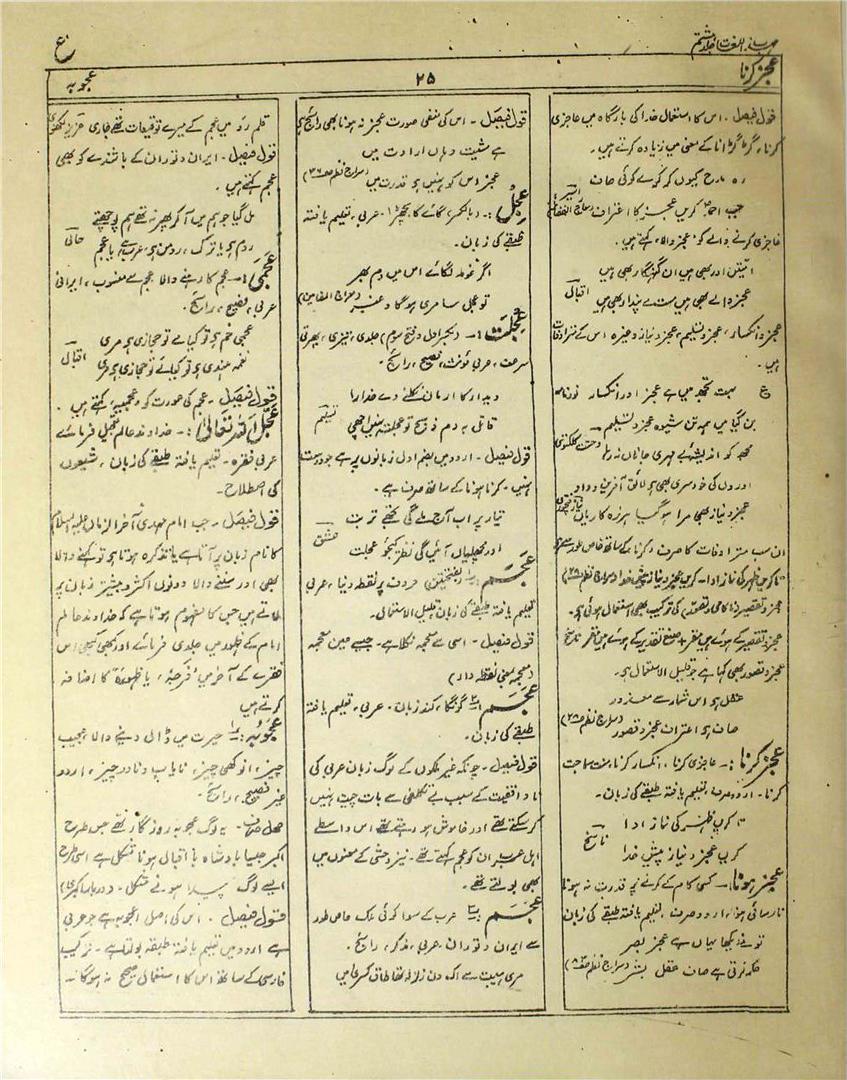 مہذب اللغات جلد ہشتم
ع
عجز کرنا
۲۵
عجوبہ
قول فیصل ۔ اس کا استعمال خدا کی بارگاہ میں عاجزی
کرنا، گڑگڑانا کے معنی میں زیادہ کرتے ہیں۔
رہ مدح کیوں کر کرے کوئی صاف
جب احمد کریں عجز کا اعتراف
عاجزی کرنے والے کو عجز والا، کہتے ہیں۔
عجز والے بھی ہیں مست مے پندار بھی ہیں اقبال
عجز و انکسار، عجز و تسلیم، عجز و نیاز وغیرہ اس کے مترادفات
ہیں۔
ع بہت تجھ میں ہے عجز اور انکسار
بن گیا میں ہمہ تن شیوہ عجز و تسلیم
اوروں کی خودسری بھی ہو لائق آفرین و داد
عجز و نیاز بھی مرا
ان سب مترادفات کا صرف کرنا کے ساتھ خاص طور سے ہے
عجز و تقصیر کی ترکیب بھی استعمال ہوئی ہے۔
عجز و قصور بھی کہا ہے جو قلیل الاستعمال ہے۔
عقل ہے اس شمار سے معذور
صاف ہے اعتراف عجز و قصور (معراج نظم ص۲۸)
عجز کرنا :۔ عاجزی کرنا، انکسار کرنا، منت سماجت
کرنا۔ اردو صرف، تعلیم یافتہ طبقے کی زبان۔
تا کریں ظہر کی نماز ادا
کریں عجز و نیاز پیش خدا
عجز ہونا :۔ کسی کام کے کرنے پر قدرت نہ ہونا
نارسائی ہونا، اردو صرف، تعلیم یافتہ طبقے کی زبان
تو نے دیکھا یہاں ہے عجز بصر
قول فیصل ۔ اس کی منفی صورت عجز نہ ہونا بھی رائج ہے
ہے مشیت وہاں ارادت میں
عجز اس کو نہیں ہے قدرت میں (معراج نظم ص۳۶)
عجل :۔ (بالکسر) گائے کا بچھڑا۔ عربی، تعلیم یافتہ
طبقے کی زبان۔
اگر غوطہ لگائے اس میں دم بھر
تو عجل سامری ہو گاو عنبر (معراج المضامین)
عجلت :۔ (بفتح اول و فتح سوم) جلدی، تیزی، پھرتی
سرعت، عربی مؤنث، فصیح، رائج۔
دیدار کا ارمان نکلنے دے خدارا
قاتل یہ دم ذبح تو عجلت نہیں اچھی تسلیم
قول فیصل ۔ اردو میں بضم اول زبانوں پر ہے جو درست
نہیں۔ کرنا ہونا کے ساتھ صرف ہے۔
اور مچھلیاں آئیں گی نظر کیجو عجلت عشق
عجم :۔ (بفتحین) حروف پر نقطہ دینا، عربی
تعلیم یافتہ طبقے کی زبان قلیل الاستعمال۔
قول فیصل ۔ اسی سے معجمہ نکلا ہے۔ جیسے عین معجمہ
(معجمہ یعنی نقطہ دار)
عجم :۔ گونگا، کند زبان۔ عربی، تعلیم یافتہ
طبقے کی زبان۔
قول فیصل ۔ چونکہ غیر ملکوں کے لوگ زبان عربی کی
ناواقفیت کے سبب بے تکلفی سے بات چیت نہیں
کر سکتے تھے اور خاموش ہو رہتے تھے اس واسطے
اہل عرب ان کو عجم کہتے تھے۔ نیز وحشی کے معنوں میں
بھی بولتے تھے۔
عجم :۔ عرب کے سوا کوئی ملک خاص طور
سے ایران و توران۔ عربی، مذکر، رائج۔
مری ہیبت سے اک دن زلزلہ تھا طاق کسریٰ میں
قلمرو میں عجم کے میرے توقیعات تھے جاری عزیز لکھنوی
قول فیصل ۔ ایران و توران کے باشندے کو بھی
عجم کہتے ہیں۔
مل گیا جو ہم میں آ کر پھر نہ تھے ہم پوچھتے
روم ہو یا ترک، رومن ہو، عرب ہو یا عجم حالی
عجمی :۔ عجم کا رہنے والا عجم سے منسوب، ایرانی
عربی، فصیح، رائج۔
عجمی خم ہے تو کیا، مے تو حجازی ہے مری
نغمہ ہندی ہے تو کیا، لے تو حجازی ہے مری اقبال
قول فیصل ۔ عجم کی عورت کو "عجمیہ" کہتے ہیں۔
عجل اللہ تعالیٰ :۔ خداوند عالم تعجیل فرمائے
عربی فقرہ۔ تعلیم یافتہ طبقے کی زبان، شیعوں
کی اصطلاح۔
قول فیصل ۔ جب امام مہدی آخر الزماں علیہ السلام
کا نام زبان پر آتا ہے یا تذکرہ ہوتا ہے تو کہنے والا
بھی اور سننے والا دونوں اکثر و بیشتر زبان پر
لاتے ہیں جس کا مفہوم ہوتا ہے کہ خداوند عالم
امام کے ظہور میں جلدی فرمائے اور کبھی کبھی اس
فقرے کے آخر میں "فرجہٗ" یا "ظہورہٗ" کا اضافہ
کرتے ہیں
عجوبہ :۔ حیرت میں ڈال دینے والا، عجیب
چیز، انوکھی چیز، نایاب و نادر چیز، اردو
غیر فصیح، رائج۔
محل صرف ۔ یہ لوگ عجوبہ روزگار تھے جس طرح
اکبر جیسا بادشاہ با اقبال ہونا مشکل ہے اسی طرح
ایسے لوگ پیدا ہونے مشکل۔ (دربار اکبری)
قول فیصل ۔ اس کی اصل اعجوبہ ہے جو عربی
ہے اردو میں تعلیم یافتہ طبقہ بولتا ہے۔ ترکیب
فارسی کے ساتھ اس کا استعمال صحیح نہ ہوگا۔